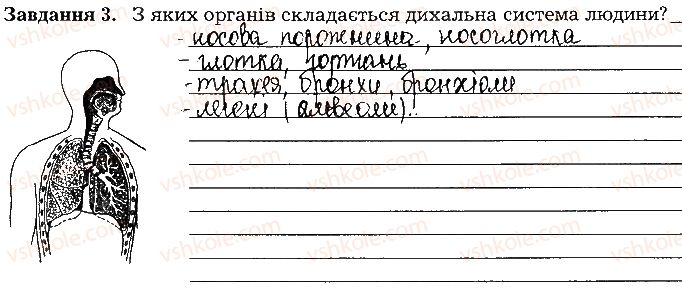 Завдання 3. З яких органів складається дихальна система людини?
- носова порожнина, носоглотка
- глотка, гортань
- трахея, бронхи, бронхіоли
- легені (альвеоли)!
vshkole.com